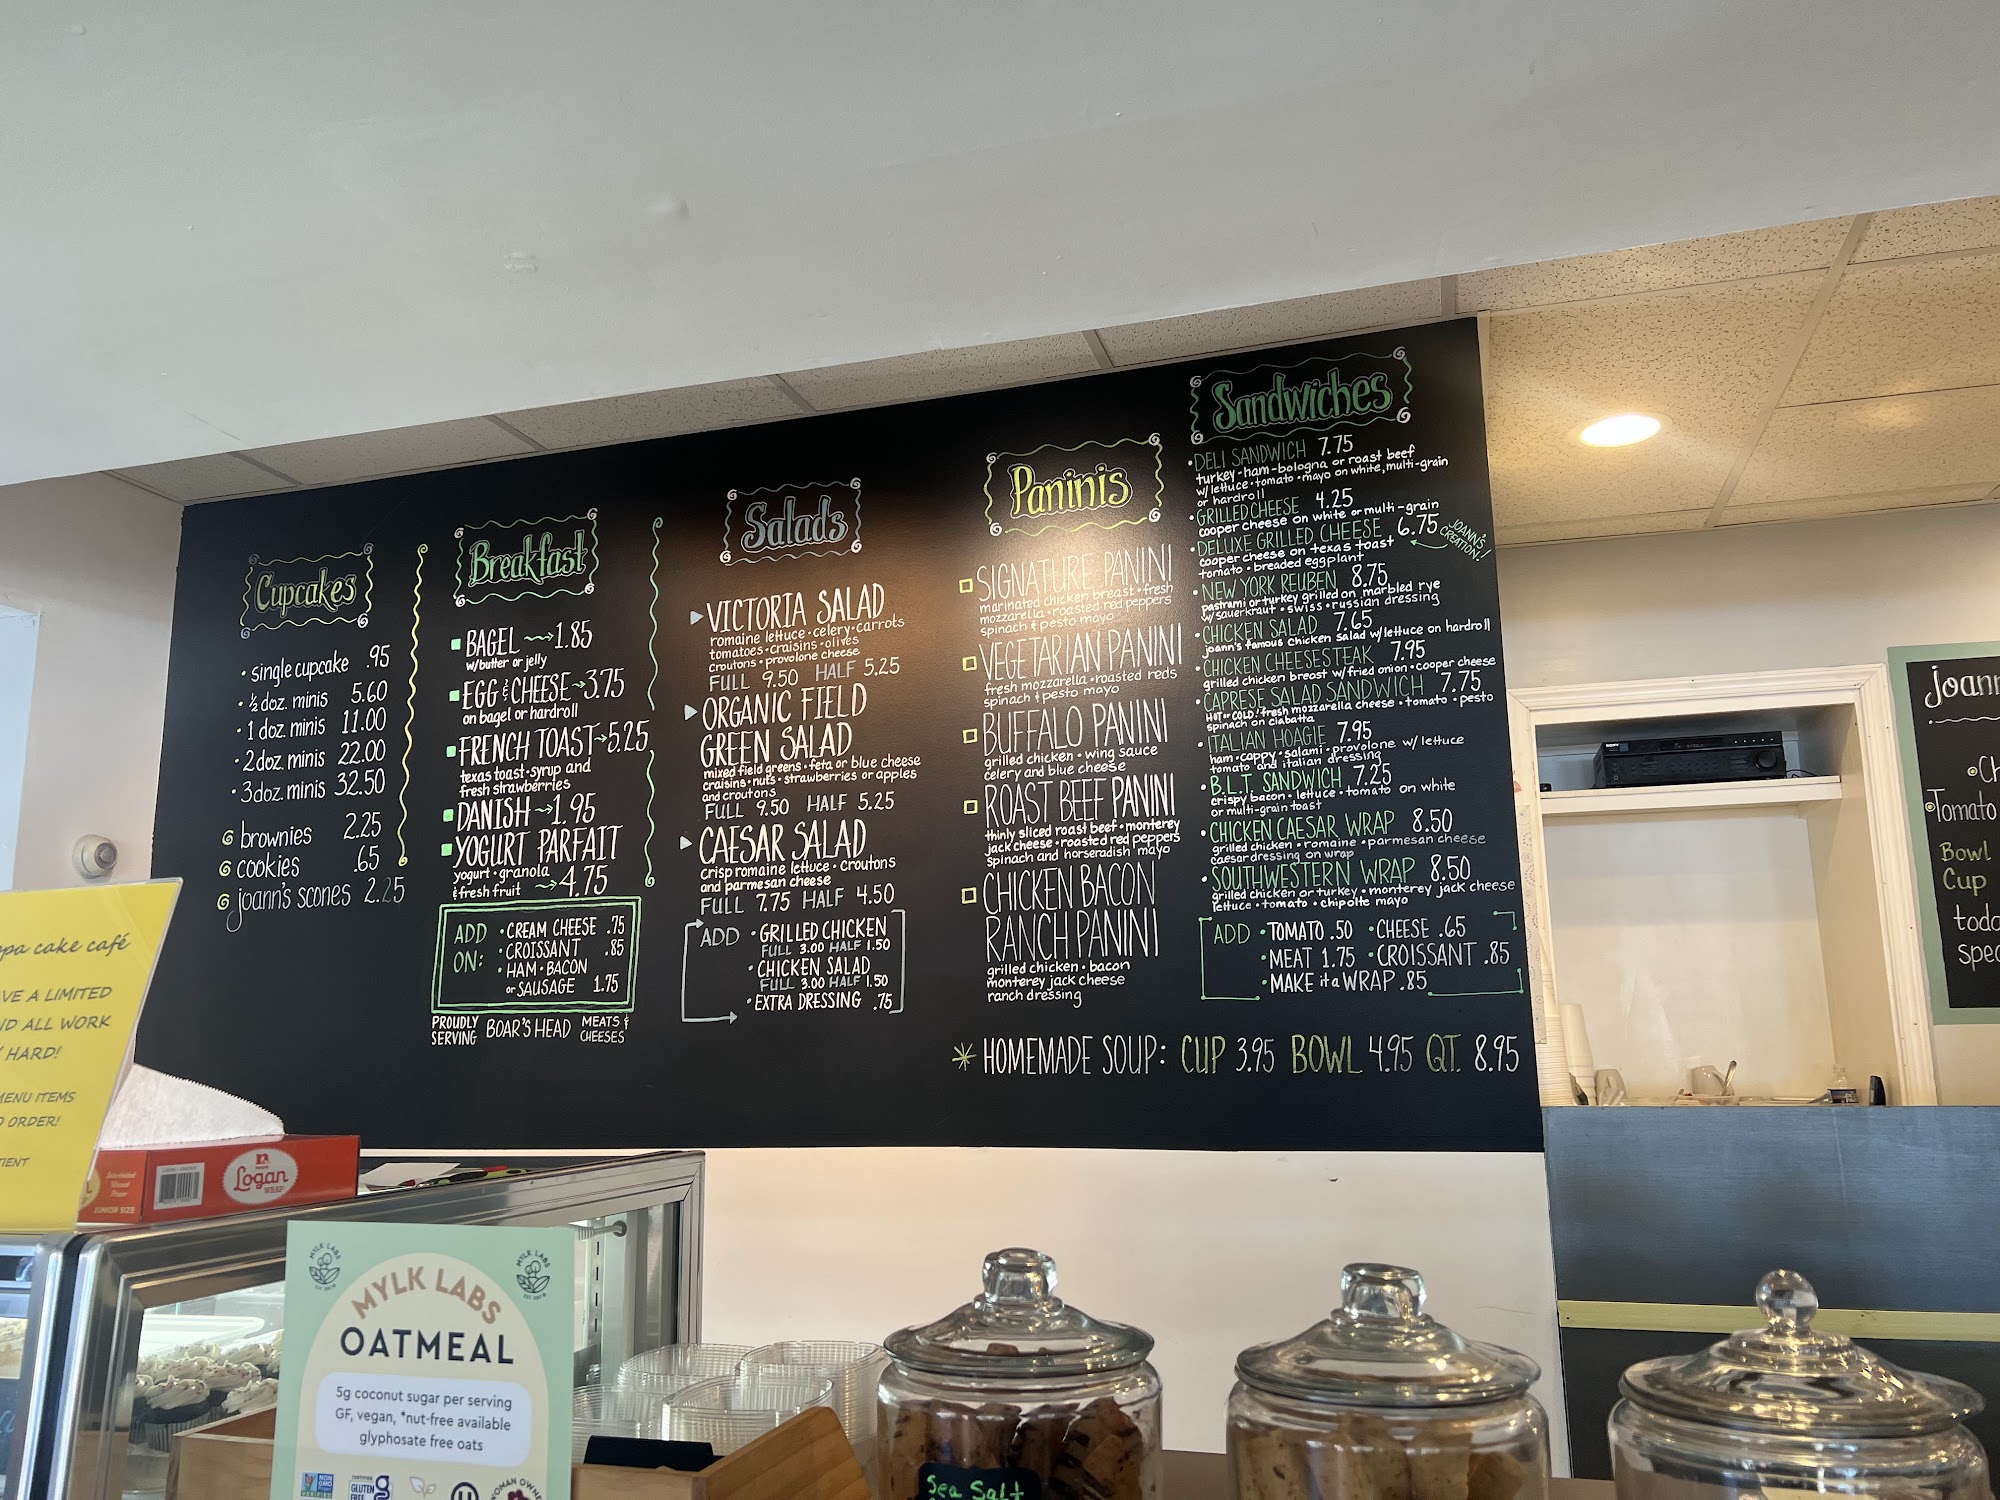 Cupcakes
single cupcake .95
½ doz. minis 5.60
1 doz. minis 11.00
2 doz. minis 22.00
3 doz. minis 32.50
brownies 2.25
cookies .65
joann's scones 2.25
Breakfast
BAGEL 1.85
w/butter or jelly
EGG & CHEESE 3.75
on bagel or hardroll
FRENCH TOAST 5.25
texas toast • syrup and
fresh strawberries
DANISH 1.95
YOGURT PARFAIT
yogurt • granola
& fresh fruit 4.75
ADD ON:
• CREAM CHEESE .75
• CROISSANT .85
• HAM • BACON
or SAUSAGE 1.75
PROUDLY SERVING BOAR'S HEAD MEATS & CHEESES
Salads
VICTORIA SALAD
romaine lettuce • celery • carrots
tomatoes • craisins • olives
croutons • provolone cheese
FULL 9.50 HALF 5.25
ORGANIC FIELD
GREEN SALAD
mixed field greens • feta or blue cheese
craisins • nuts • strawberries or apples
and croutons
FULL 9.50 HALF 5.25
CAESAR SALAD
crisp romaine lettuce • croutons
and parmesan cheese
FULL 7.75 HALF 4.50
ADD • GRILLED CHICKEN
FULL 3.00 HALF 1.50
• CHICKEN SALAD
FULL 3.00 HALF 1.50
• EXTRA DRESSING .75
Paninis
SIGNATURE PANINI
marinated chicken breast • fresh
mozzarella • roasted red peppers
spinach & pesto mayo
VEGETARIAN PANINI
fresh mozzarella • roasted reds
spinach & pesto mayo
BUFFALO PANINI
grilled chicken • wing sauce
celery and blue cheese
ROAST BEEF PANINI
thinly sliced roast beef • monterey
jack cheese • roasted red peppers
spinach and horseradish mayo
CHICKEN BACON
RANCH PANINI
grilled chicken • bacon
monterey jack cheese
ranch dressing
Sandwiches
• DELI SANDWICH 7.75
turkey - ham - bologna or roast beef
w/ lettuce • tomato • mayo on white, multi-grain
or hardroll
• GRILLED CHEESE 4.25
cooper cheese on white or multi-grain
• DELUXE GRILLED CHEESE 6.75
JOANN'S CREATION!
cooper cheese on texas toast
tomato • breaded eggplant
• NEW YORK REUBEN 8.75
pastrami or turkey grilled on marbled rye
w/ sauerkraut • swiss • russian dressing
• CHICKEN SALAD 7.65
joann's famous chicken salad w/lettuce on hardroll
• CHICKEN CHEESESTEAK 7.95
grilled chicken breast w/fried onion • cooper cheese
• CAPRESE SALAD SANDWICH 7.75
HOT or COLD! fresh mozzarella cheese • tomato • pesto
spinach on ciabatta
• ITALIAN HOAGIE 7.95
ham • cappy • salami • provolone w/ lettuce
tomato and italian dressing
• B.L.T. SANDWICH 7.25
crispy bacon • lettuce • tomato on white
or multi-grain toast
• CHICKEN CAESAR WRAP 8.50
grilled chicken • romaine • parmesan cheese
caesar dressing on wrap
• SOUTHWESTERN WRAP 8.50
grilled chicken or turkey • monterey jack cheese
lettuce • tomato • chipotle mayo
ADD • TOMATO .50 • CHEESE .65
• MEAT 1.75 • CROISSANT .85
• MAKE it a WRAP .85
* HOMEMADE SOUP: CUP 3.95 BOWL 4.95 QT. 8.95
SONY
joann
Ch
Tomato
Bowl
Cup
toda
spec
cake café
VE A LIMITED
ND ALL WORK
HARD!
MENU ITEMS
ORDER!
TIENT
Logan
WRAP
JUNIOR SIZE
MYLK LABS
MYLK LABS
MYLK LABS
OATMEAL
5g coconut sugar per serving
GF, vegan, *nut-free available
glyphosate free oats
NON GMO
VERIFIED
CERTIFIED
GLUTEN
FREE
U
WOMAN OWNED
Sea Salt